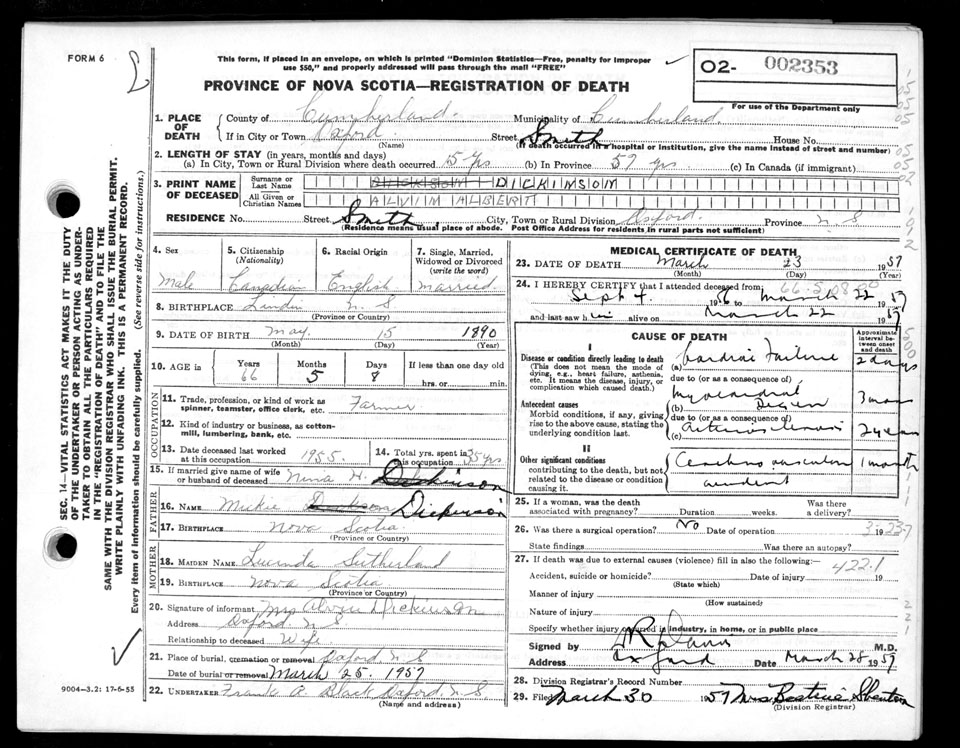 FORM 6
This form, if placed in an envelope, on which is printed "Dominion Statistics—Free, penalty for improper
use $50," and properly addressed will pass through the mail "FREE"
02- 002353
PROVINCE OF NOVA SCOTIA—REGISTRATION OF DEATH
For use of the Department only
1. PLACE OF DEATH
County of Cumberland. Municipality of Cumberland.
If in City or Town Oxford. Street Smith House No.
(Name) (If death occurred in a hospital or institution, give the name instead of street and number)
2. LENGTH OF STAY (in years, months and days)
(a) In City, Town or Rural Division where death occurred 5 yrs (b) In Province 57 yrs. (c) In Canada (if immigrant)
3. PRINT NAME OF DECEASED
Surname or Last Name DICKINSON
All Given or Christian Names ALVIN ALBERT
RESIDENCE No. Street Smith City, Town or Rural Division Oxford. Province N S
(Residence means usual place of abode. Post Office Address for residents in rural parts not sufficient)
4. Sex Male
5. Citizenship (Nationality) Canadian
6. Racial Origin English
7. Single, Married, Widowed or Divorced (write the word) Married.
8. BIRTHPLACE N. S
(Province or Country)
9. DATE OF BIRTH May 15 1890
(Month) (Day) (Year)
10. AGE Years 66 Months 5 Days 8 If less than one day old
hrs. or min.
OCCUPATION
11. Trade, profession, or kind of work as spinner, teamster, office clerk, etc. Farmer
12. Kind of industry or business, as cotton-mill, lumbering, bank, etc.
13. Date deceased last worked at this occupation 1955.
14. Total yrs. spent in this occupation 35 yrs.
15. If married give name of wife or husband of deceased Nina H. Dickinson
FATHER
16. NAME Dickinson
17. BIRTHPLACE Nova Scotia.
(Province or Country)
MOTHER
18. MAIDEN NAME Lucinda Sutherland
19. BIRTHPLACE Nova Scotia
(Province or Country)
20. Signature of informant Mrs Alvin Dickinson
Address Oxford N S
Relationship to deceased Wife
21. Place of burial, cremation or removal Oxford N. S
Date of burial or removal March 25. 1957
22. UNDERTAKER Frank A Black Oxford, N S
(Name and address)
MEDICAL CERTIFICATE OF DEATH
23. DATE OF DEATH March 23 1957
(Month) (Day) (Year)
24. I HEREBY CERTIFY that I attended deceased from
Sept 4. 1956 to March 22 1957
and last saw him alive on March 22 1957
CAUSE OF DEATH
Approximate interval between onset and death
I
Disease or condition directly leading to death
(This does not mean the mode of dying, e.g., heart failure, asthenia, etc. It means the disease, injury, or complication which caused death.)
(a) Cardiac Failure 2 days
due to (or as a consequence of)
Antecedent causes
Morbid conditions, if any, giving rise to the above cause, stating the underlying condition last.
(b) Myocardial 3 mon
due to (or as a consequence of)
(c) 2 years
II
Other significant conditions
contributing to the death, but not related to the disease or condition causing it.
Cerebro vascular accident 1 month
25. If a woman, was the death associated with pregnancy? Duration weeks. Was there a delivery?
26. Was there a surgical operation? No Date of operation 19
State findings Was there an autopsy?
27. If death was due to external causes (violence) fill in also the following:— 422.1
Accident, suicide or homicide? Date of injury 19
(State which)
Manner of injury
(How sustained)
Nature of injury
Specify whether injury occurred in industry, in home, or in public place
Signed by M.D.
Address Oxford Date March 28 1957
28. Division Registrar's Record Number
29. Filed March 30 1957 Mrs
(Division Registrar)
SEC. 14—VITAL STATISTICS ACT MAKES IT THE DUTY
OF THE UNDERTAKER OR PERSON ACTING AS UNDER-
TAKER TO OBTAIN ALL THE PARTICULARS REQUIRED
IN THE "REGISTRATION OF DEATH" AND TO FILE THE
SAME WITH THE DIVISION REGISTRAR WHO SHALL ISSUE THE BURIAL PERMIT.
WRITE PLAINLY WITH UNFADING INK. THIS IS A PERMANENT RECORD.
Every item of information should be carefully supplied. (See reverse side for instructions.)
9004—3.2: 17-6-55